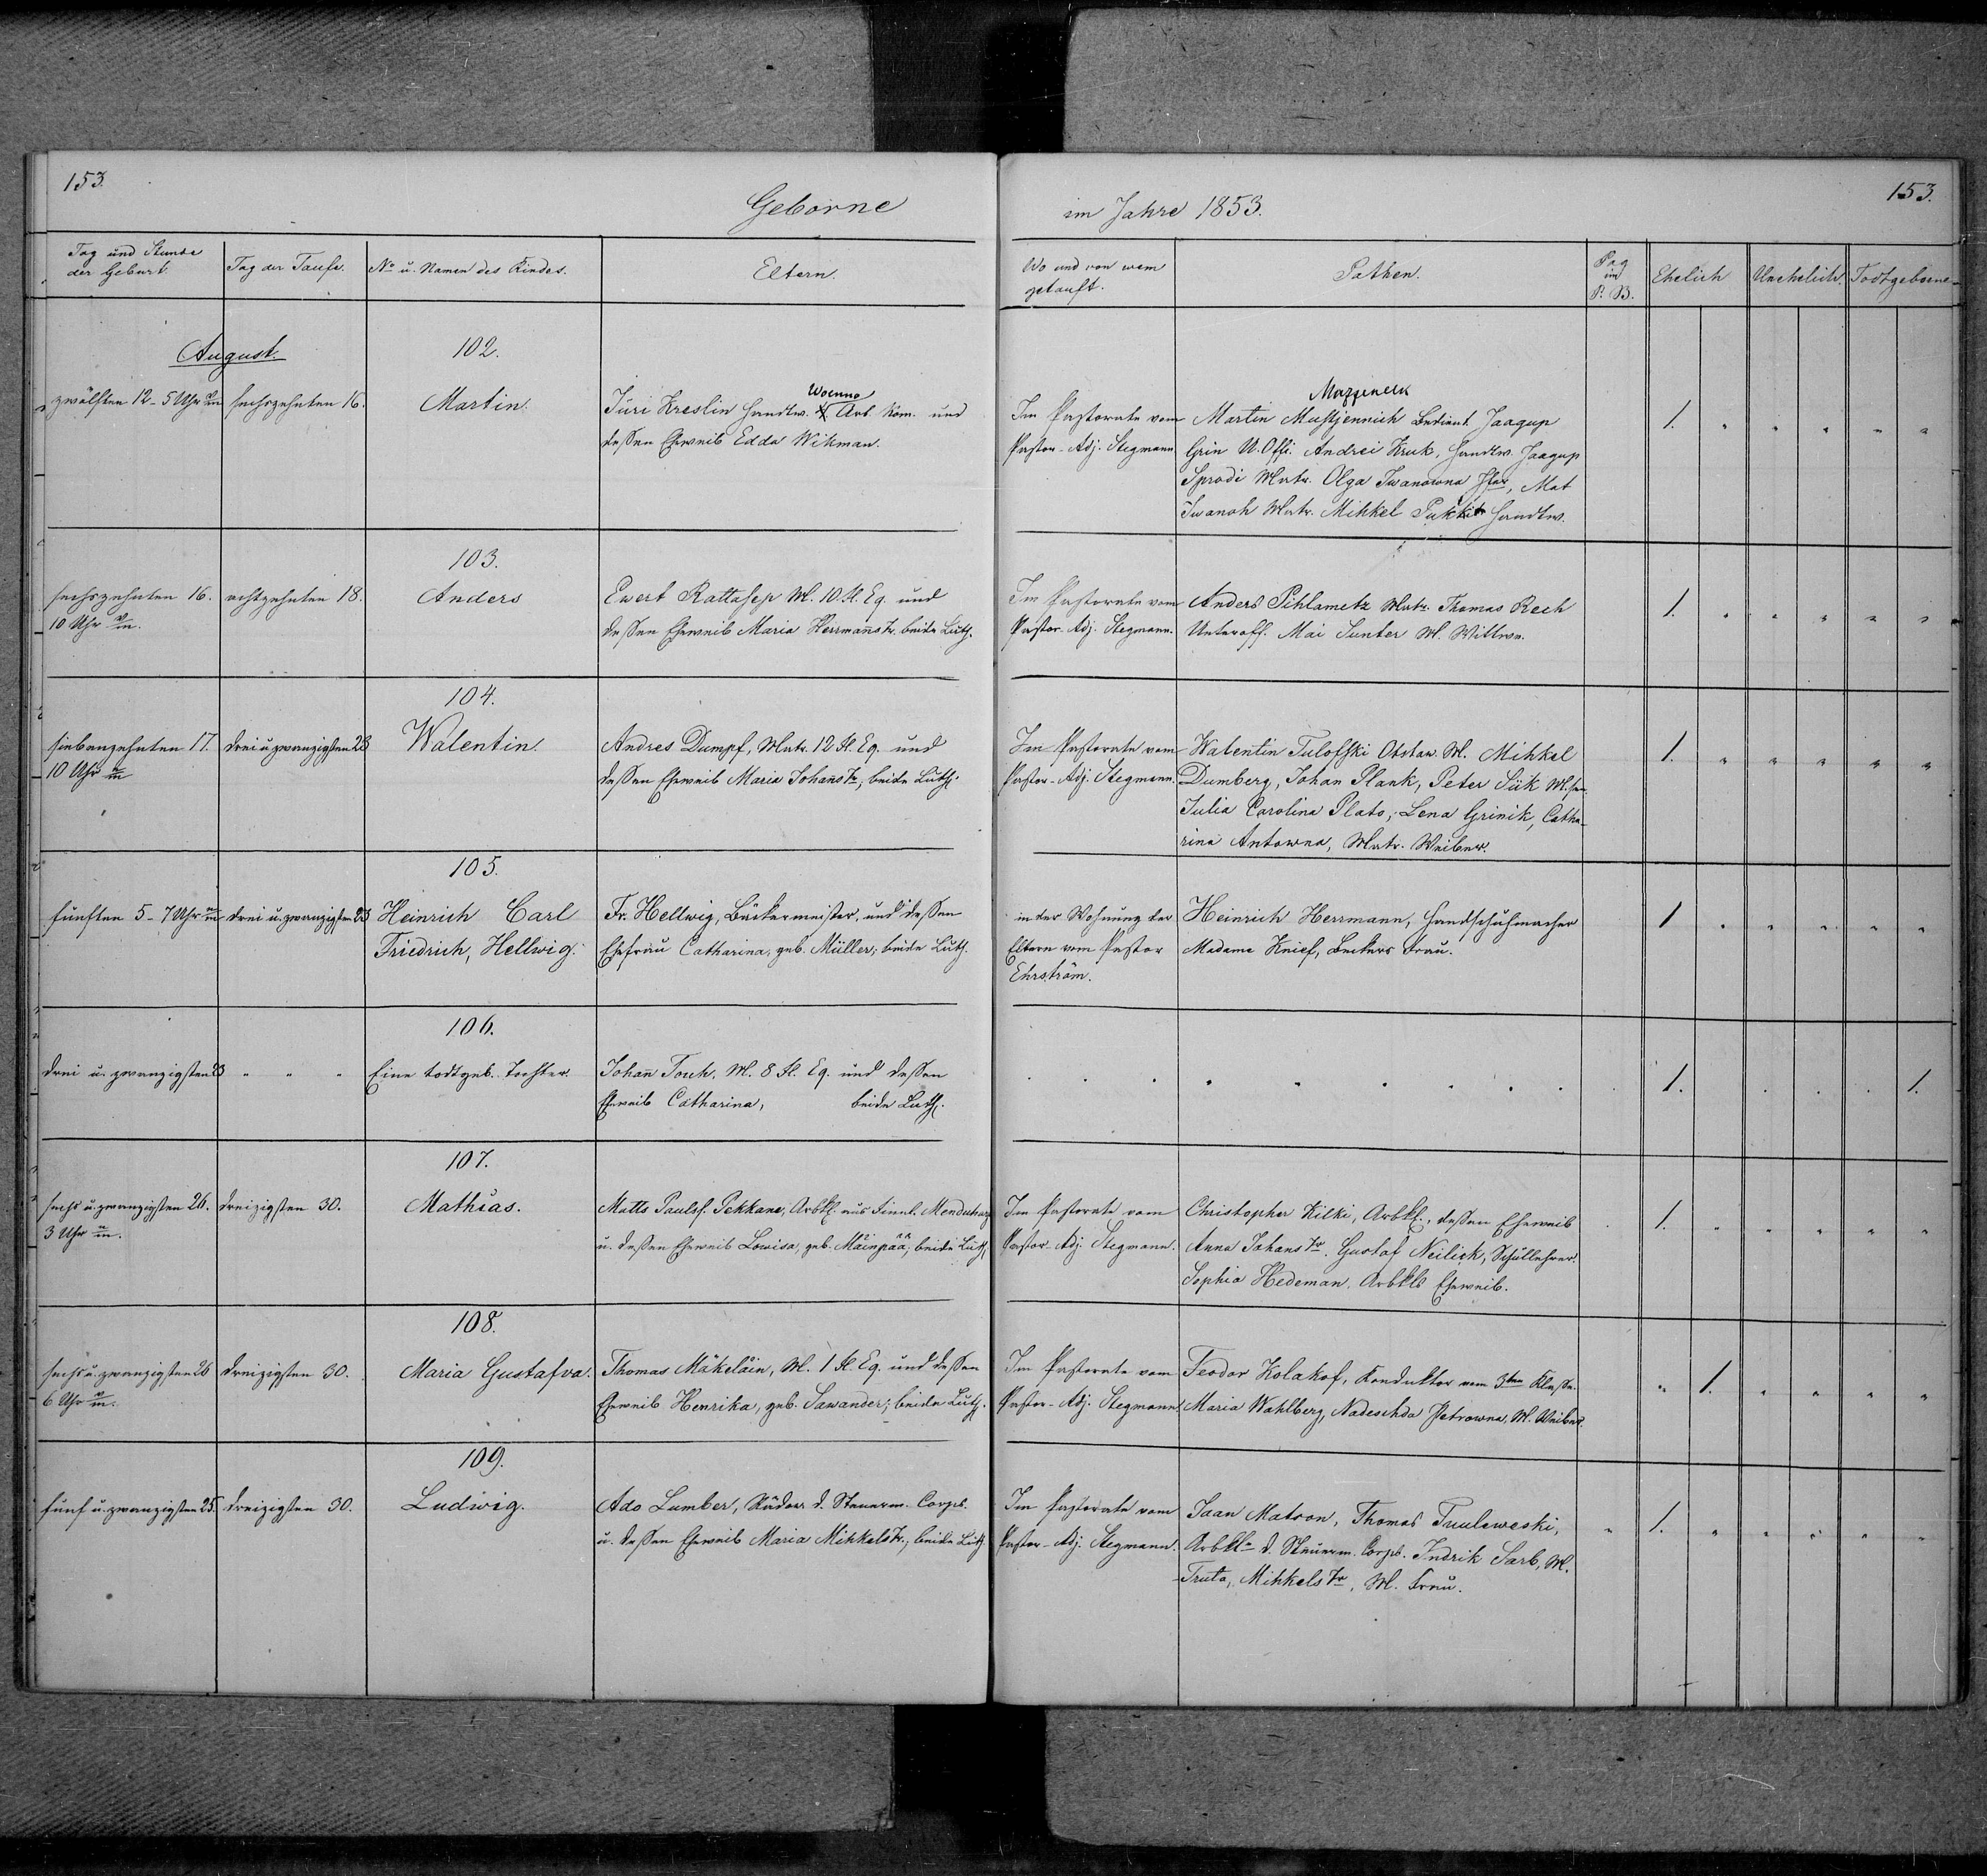 153.
Geborne
im Jahre 1853.
153.
Tag und Stunde
der Geburt.
Tag der Taufe.
No u. Namen des Kindes.
Eltern.
Wo und von wem
getauft.
Pathen.
Pag
im
P. B.
Ehelich
Unehelich.
Todtgeborne
August.
102.
zwölften 12 - 5 Uhr
sechszehnten 16.
Martin.
Woenno
Jüri Kreslin Handlw. Arb Kom. und
deßen Eheweib Edda Wikman.
Im Pastorate vom
Pastor-Adj. Stegmann
Martin Bedient. Jaagup
Grin U. Offi. Andrei Kruk, Handlw. Jaagup
Sprodi Matr. Olga Iwanowna Mat
Iwanoh Matr. Mihkel Handlw.
1.
103.
sechszehnten 16.
10 Uhr
achtzehnten 18.
Anders
Ewert Rattasep M. 10 Fl. Eq. und
deßen Eheweib Maria Herrmanns tr. beide Luth.
Im Pastorate vom
Pastor-Adj. Stegmann.
Anders Pihlametz Matr. Thomas Rech
Unteroff. Mai Sunter M. Wittwe.
1.
104.
siebenzehnten 17.
10 Uhr
drei u. zwanzigsten 23
Walentin.
Andres Dumpf, Matr. 12 Fl. Eq. und
deßen Eheweib Maria Johans tr, beide Luth.
Im Pastorate vom
Pastor-Adj. Stegmann.
Walentin Tulofski M. Mihkel
Dumberg, Johan Plank, Peter Sük
Julia Carolina Plato, Lena Grinik, Catha-
rina Antowna, Matr. Weiber.
1.
105.
fünften 5 - 7 Uhr
drei u. zwanzigsten 23
Heinrich Carl
Friedrich, Hellwig.
Fr. Hellwig, Bäckermeister, und deßen
Ehefrau Catharina, geb. Müller; beide Luth.
in der Wohnung der
Eltern vom Pastor
Ehrström.
Heinrich Herrmann, Handschuhmacher
Madame Knief, Beckers Frau.
1
106.
drei u. zwanzigsten 23
Eine todtgeb. Tochter.
Johan Touh. M. 8 Fl. Eq. und deßen
Eheweib Catharina, beide Luth.
1.
1.
107.
sechs u. zwanzigsten 26.
3 Uhr
dreizigsten 30.
Mathias.
Matts Paulsf. Pekkane, Arbkl. aus Finnl.
u. deßen Eheweib Lowisa, geb. Mäinpää, beide Luth.
Im Pastorate vom
Pastor-Adj. Stegmann.
Christopher Kilki, Arbkl., deßen Eheweib
Anna Johans tr. Gustaf Neilick, Schullehrer.
Sophia Hedeman, Arbkls Eheweib.
1.
108.
sechs u. zwanzigsten 26
6 Uhr
dreizigsten 30.
Maria Gustafva.
Thomas Mäkeläin, M. 1 Fl. Eq. und deßen
Eheweib Henrika, geb. Sawander; beide Luth.
Im Pastorate vom
Pastor-Adj. Stegmann.
Feodor Kolakof, Konduktor vom 3ten Klaße.
Maria Wahlberg, Nadeschda Petrowna, M. Weiber.
1.
109.
fünf u. zwanzigsten 25.
dreizigsten 30.
Ludwig.
Ado Lumber, d. Steuerm. Corps.
u. deßen Eheweib Maria Mihkels tr., beide Luth
Im Pastorate vom
Pastor-Adj. Stegmann.
Jaan Matson, Thomas Tuuleweski,
Arbkl. d. Steuerm. Corps. Indrik Sarb, M.
Truta, Mihkels tr, M. Frau.
1.